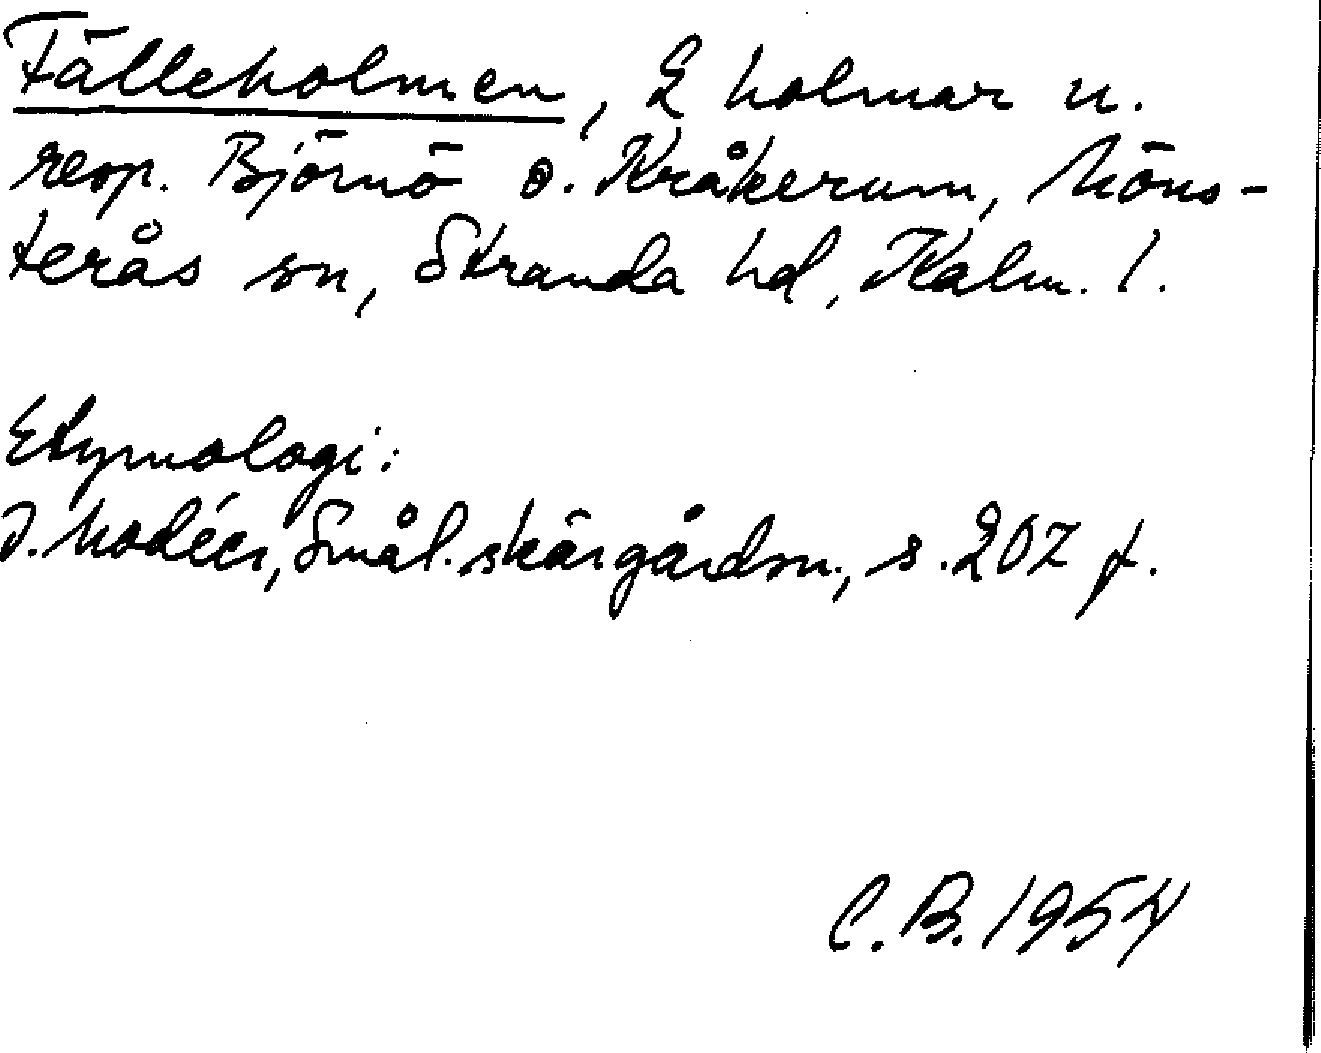 Fälleholmen, 2 holmar u.
resp. Björnö o. Kråkerum, Möns-
terås sn, Stranda hd, Kalm. l.
Etymologi:
I. Modéer, Smål. skärgårdsn., s. 207 f.
C. B. 1954